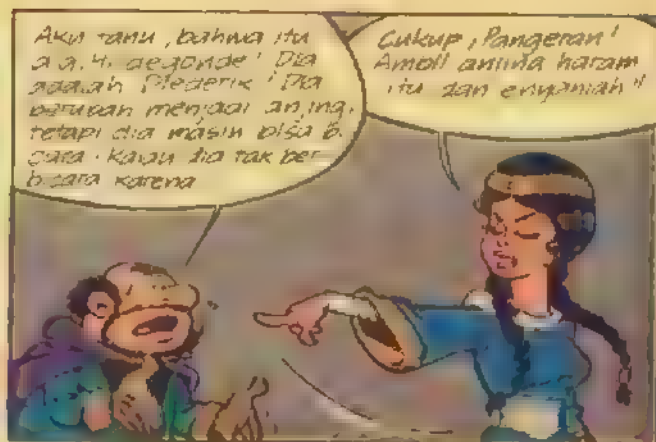 Aku tahu, bahwa itu
adalah Plederik! Dia
berubah menjadi anjing,
tetapi dia masih bisa b.
cara. Kalau dia tak ber-
bicara karena
Cukup, Pangeran!
Ambil anjing haram
itu dan enyahlah!!